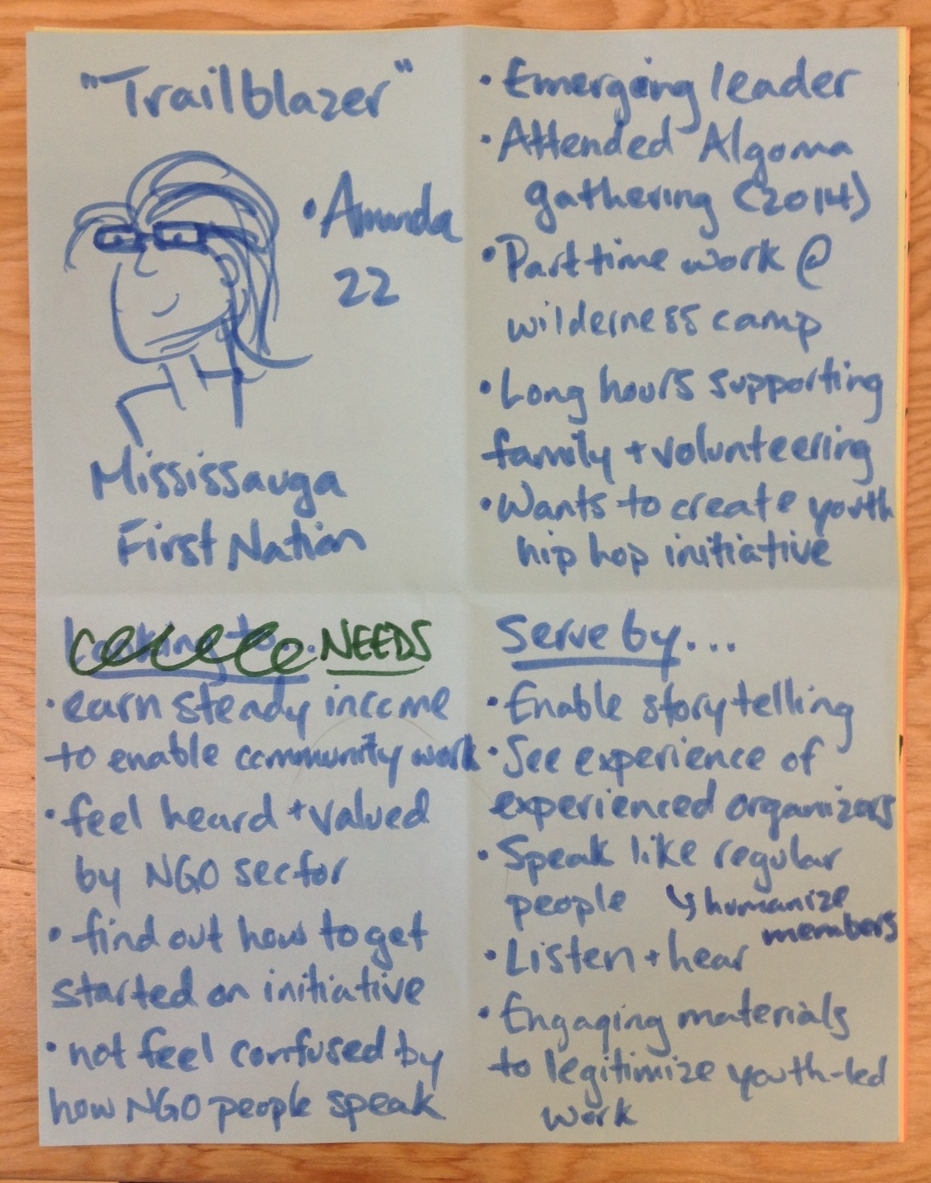 "Trailblazer"
• Amanda
22
Mississauga
First Nation
• Emerging leader
• Attended Algoma
gathering (2014)
• Part time work @
wilderness camp
• Long hours supporting
family + volunteering
• Wants to create youth
hip hop initiative
Looking to... NEEDS
• earn steady income
to enable community work
• feel heard + valued
by NGO sector
• find out how to get
started on initiative
• not feel confused by
how NGO people speak
Serve by...
• Enable storytelling
• See experience of
experienced organizers
• Speak like regular
people ↳ humanize
members
• Listen + hear
• Engaging materials
to legitimize youth-led
work